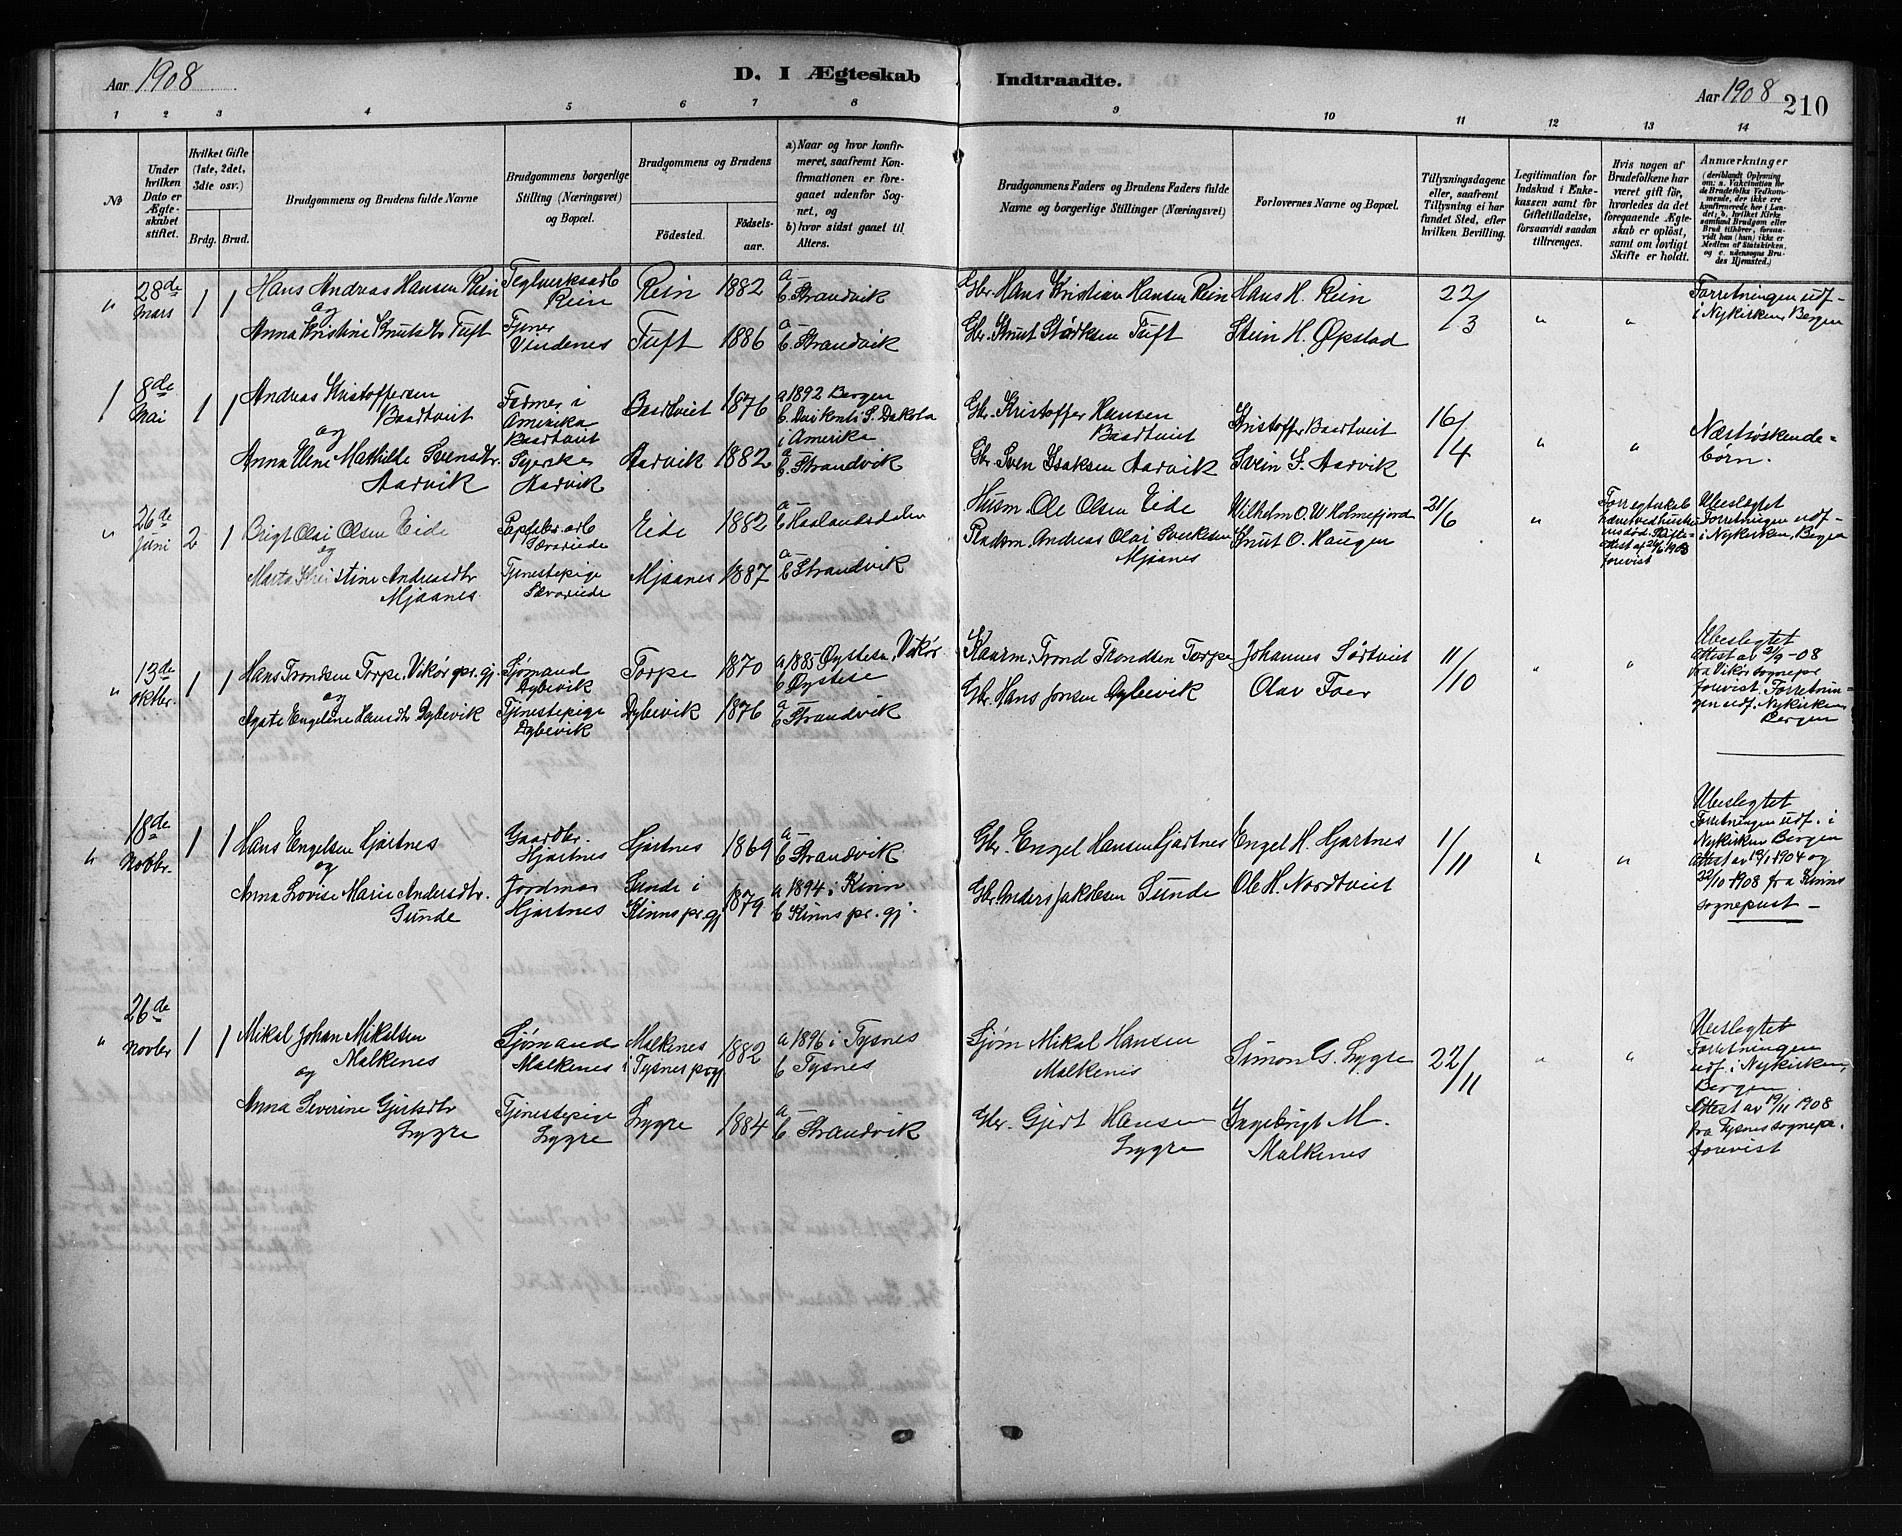 Aar 1908
D. I Ægteskab Indtraadte.
Aar 1908 210
1 2 3 4 5 6 7 8 9 10 11 12 13 14
No
Under hvilken Dato er Ægteskabet stiftet.
Hvilket Gifte (1ste, 2det, 3die osv.)
Brdg. Brud.
Brudgommens og Brudens fulde Navne
Brudgommens borgerlige Stilling (Næringsvei) og Bopæl.
Brudgommens og Brudens
Fødested. Fødselsaar.
a) Naar og hvor Konfirmeret, saafremt Konfirmationen er foregaaet udenfor Sognet, og
b) hvor sidst gaaet til Alters.
Brudgommens Faders og Brudens Faders fulde Navne og borgerlige Stillinger (Næringsvei)
Forlovernes Navne og Bopæl.
Tillysningsdagene eller, saafremt Tillysning ei har fundet Sted, efter hvilken Bevilling.
Legitimation for Indskud i Enkekassen samt for Giftetilladelse, forsaavidt saadan tiltrænges.
Hvis nogen af Brudefolkene har været gift før, hvorledes da det foregaaende Ægteskab er opløst, samt om lovligt Skifte er holdt.
Anmærkninger (deriblandt Oplysning om: a. Vakcination for de Brudefolks Vedkommende, der ikke ere konfirmerede her i Landet; b. hvilket Kirkesamfund Brudgom eller Brud tilhører, forsaavidt han (hun) ikke er Medlem af Statskirken, og c. udensogns Brudes Hjemsted.)
" 28de Mars 1 1 Hans Andreas Hansen Rein Teglverksarb Rein Rein 1882 a – b. Strandvik Gbr. Hans Kristian Hansen Rein Hans H. Rein 22/3 " " Forretningen udf. i Nykirken, Bergen
og
Anna Kristine Knutsdtr Tuft Tjener Vindenes Tuft 1886 a – b. Strandvik Gbr. Knut Størksen Tuft Stein H. Øpstad
1 8de Mai 1 1 Andreas Kristoffersen Baadtveit Farmer i Amerika Baadtveit Baadtveit 1876 a 1892 Bergen b. S. Dakota i Amerika Gbr. Kristoffer Hansen Baadtveit Kristoffer Baadtveit 16/4 " " Næstsøskendebørn.
og
Anna Elene Mathilde Svensdtr. Aarvik Syerske Aarvik Aarvik 1882 a – b. Strandvik Gbr. Sven Isaksen Aarvik Svein I. Aarvik
" 26de Juni 2 1 Brigt Olai Olsen Eide Sævareide Eide 1882 a – b Husm. Ole Olsen Eide Wilhelm O. W. Holmefjord 21/6 " Ubeslegtet Forretningen udf. i Nykirken, Bergen
og
Marta Kristine Andreasdtr Mjaanes Tjenestepige Sævareide Mjaanes 1887 a – b Strandvik Pladsm. Andreas Olai Sverkesen Mjaanes Knut O. Haugen
" 13de oktbr. 1 1 Hans Trondsen Torpe, Vikør pr. gj. Sjømand Dybevik Torpe 1870 a 1885 Øystese, Vikør b Øystese Kaarm. Trond Trondsen Torpe Johannes Sørtveit 11/10 " " Ubeslegtet Attest av 21/9-08 fra Vikør sognepr forevist. Forretningen udf. Nykirken, Bergen
og
Agate Engeline Hansdtr Dybevik Tjenestepige Dybevik Dybevik 1876 a – b Strandvik Gbr. Hans Jonsen Dybevik Olav Toer
" 18de Novbr. 1 1 Hans Engelsen Hjartnes Gaardbr. Hjartnes Hjartnes 1869 a – b Strandvik Gbr. Engel Hansen Hjartnes Engel H. Hjartnes 1/11 " " Ubeslegtet Forretningen udf. i Nykirken Bergen Attest av 19/1 1904 og 22/10 1908 fra Kinns sognepræst
og
Anna Lovise Marie Andersdtr. Sunde Jordmor Hjartnes Sunde i Kinns pr. gj. 1879 a 1894 i Kinn b Kinns pr. gj. Gbr. Anders Jakobsen Sunde Ole H. Nordtveit
" 26de Novbr 1 1 Mikal Johan Mikalsen Malkenes Sjømand Malkenes Malkenes i Tysnes prgj 1882 a 1896 i Tysnes b Tysnes Sjøm Mikal Hansen Malkenes Simon G. Lygre 22/11 " " Ubeslegtet Forretningen udf. i Nykirken, Bergen. Attest av 19/11 1908 fra Tysnes sognepr. forevist
og
Anna Severine Gjertsdtr Lygre Tjenestepige Lygre Lygre 1884 a – b Strandvik Gbr. Gjert Hansen Lygre Ingebrigt M. Malkenes